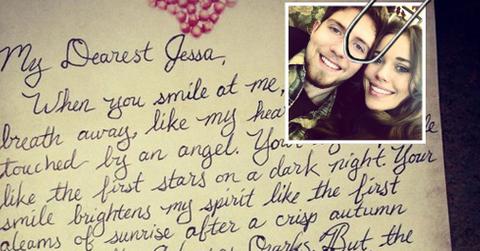 My Dearest Jessa,
When you smile at me,
breath away, like my
touched by an angel.
like the first stars on a dark night. Your
smile brightens my spirit like the first
gleams of sunrise after a crisp autumn
Ozarks. But the